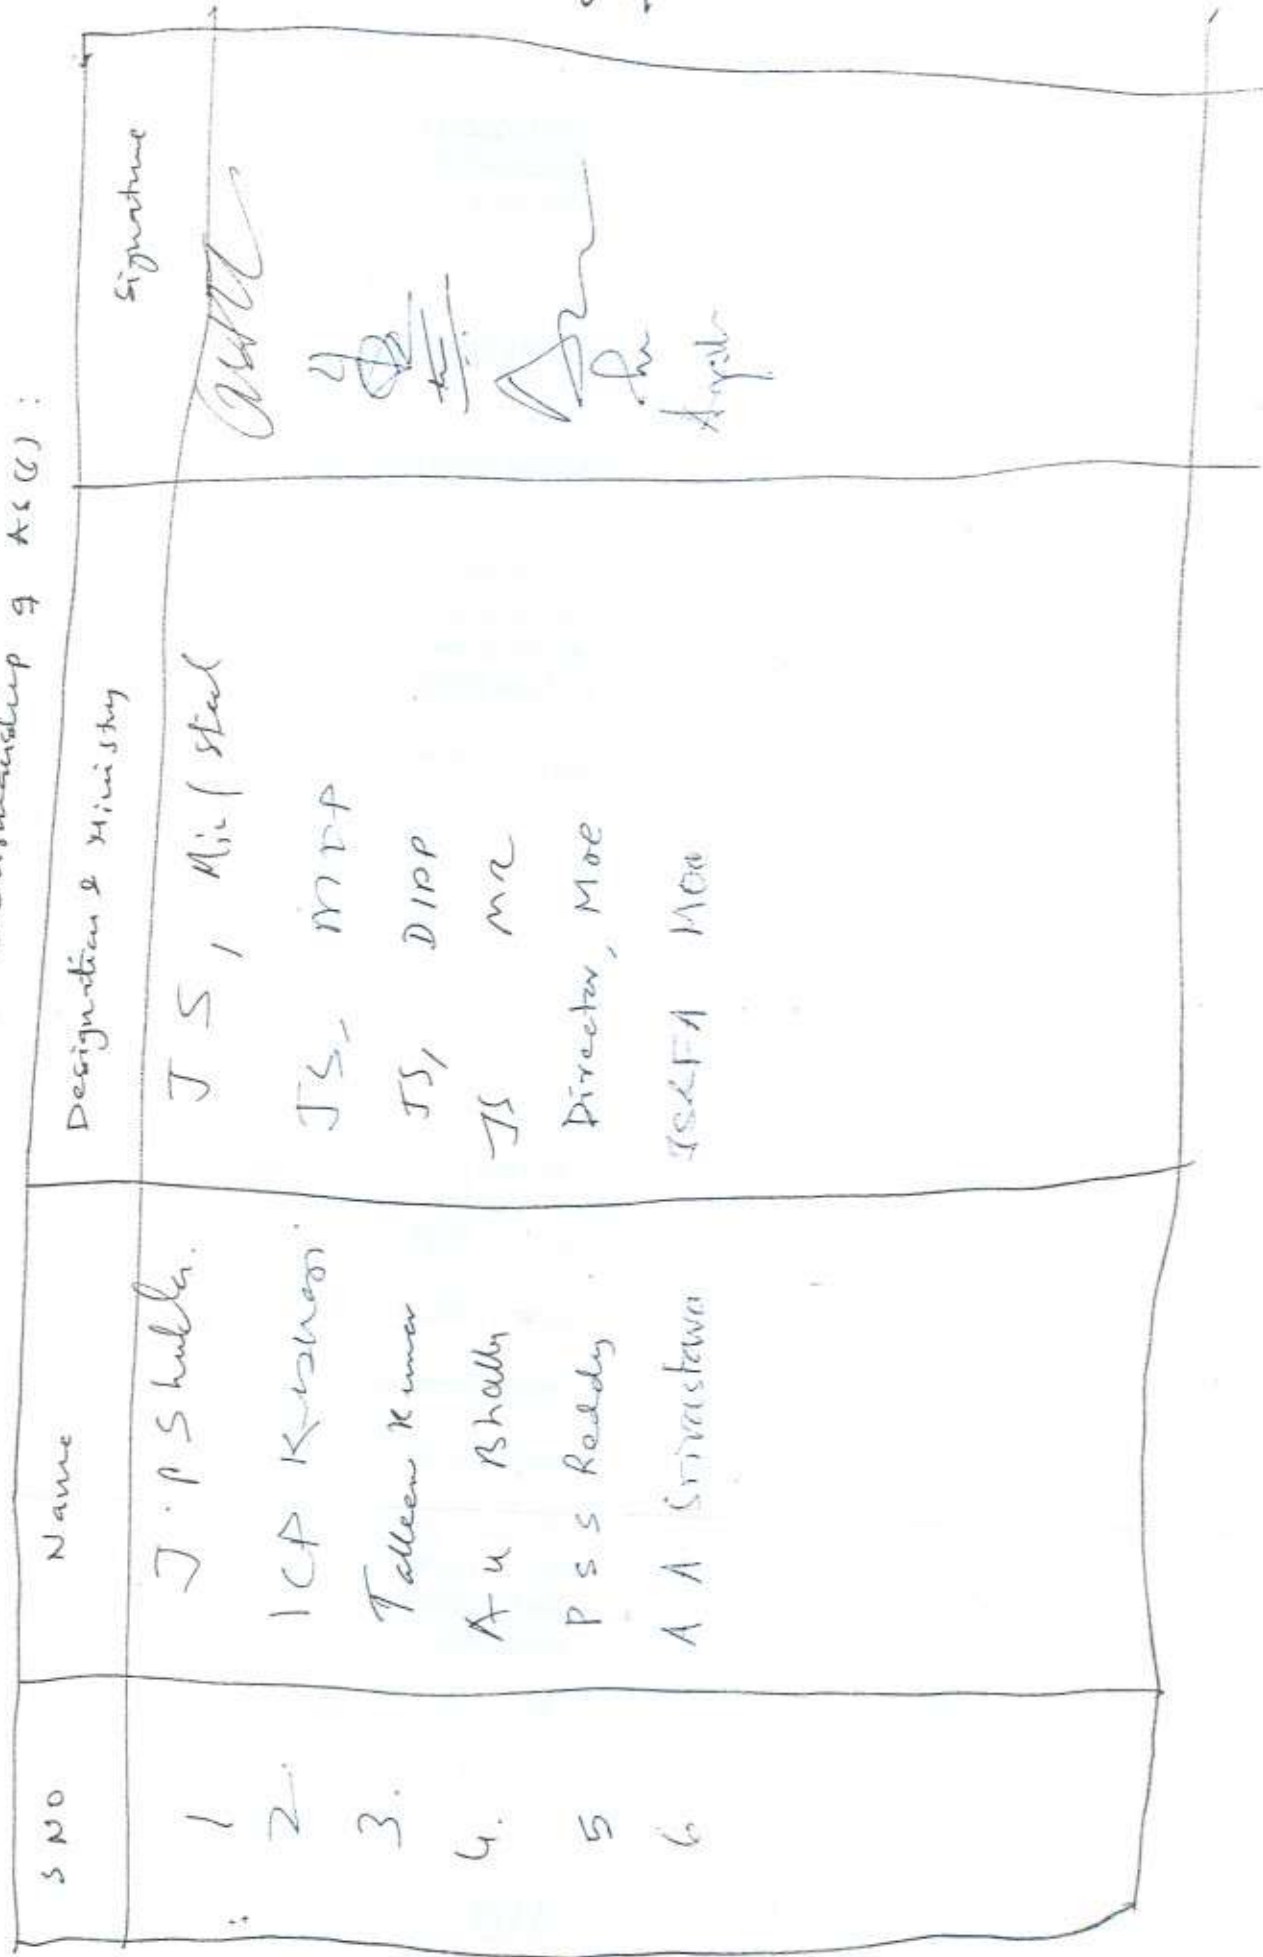 AS (C) :
S NO Name Designation & Ministry Signature
1 J. P Shukla. JS, Min / Steel
2. I C P Keshari JS,
3. Talleen Kumar JS, DIPP
4. A K Bhalla JS
5 P S S Reddy Director, MoC
6 A A Srivastava JS&FA MoC